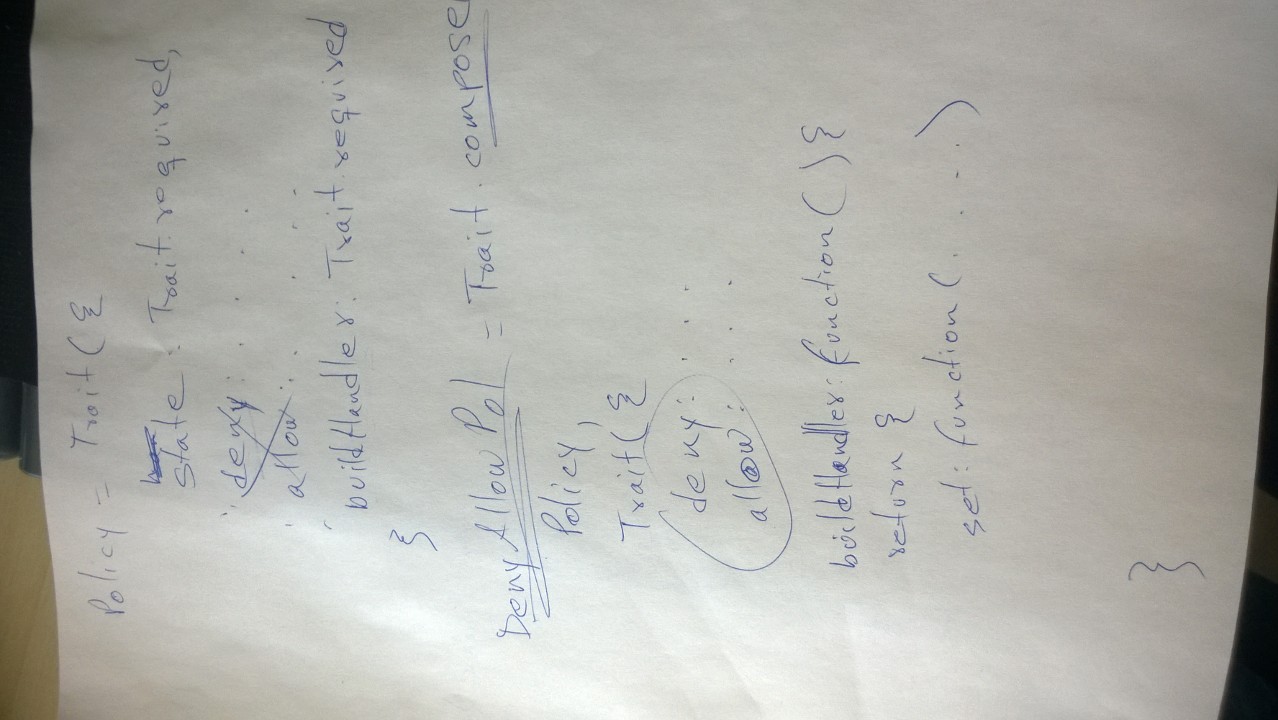 Policy = Trait({
State: Trait.required,
deny: . . .
allow: . . .
buildHandler: Trait.required
}
DenyAllowPol = Trait.compose
Policy,
Trait({
deny: . . .
allow: . .
buildHandler: function(){
return {
set: function(. . . .)
}